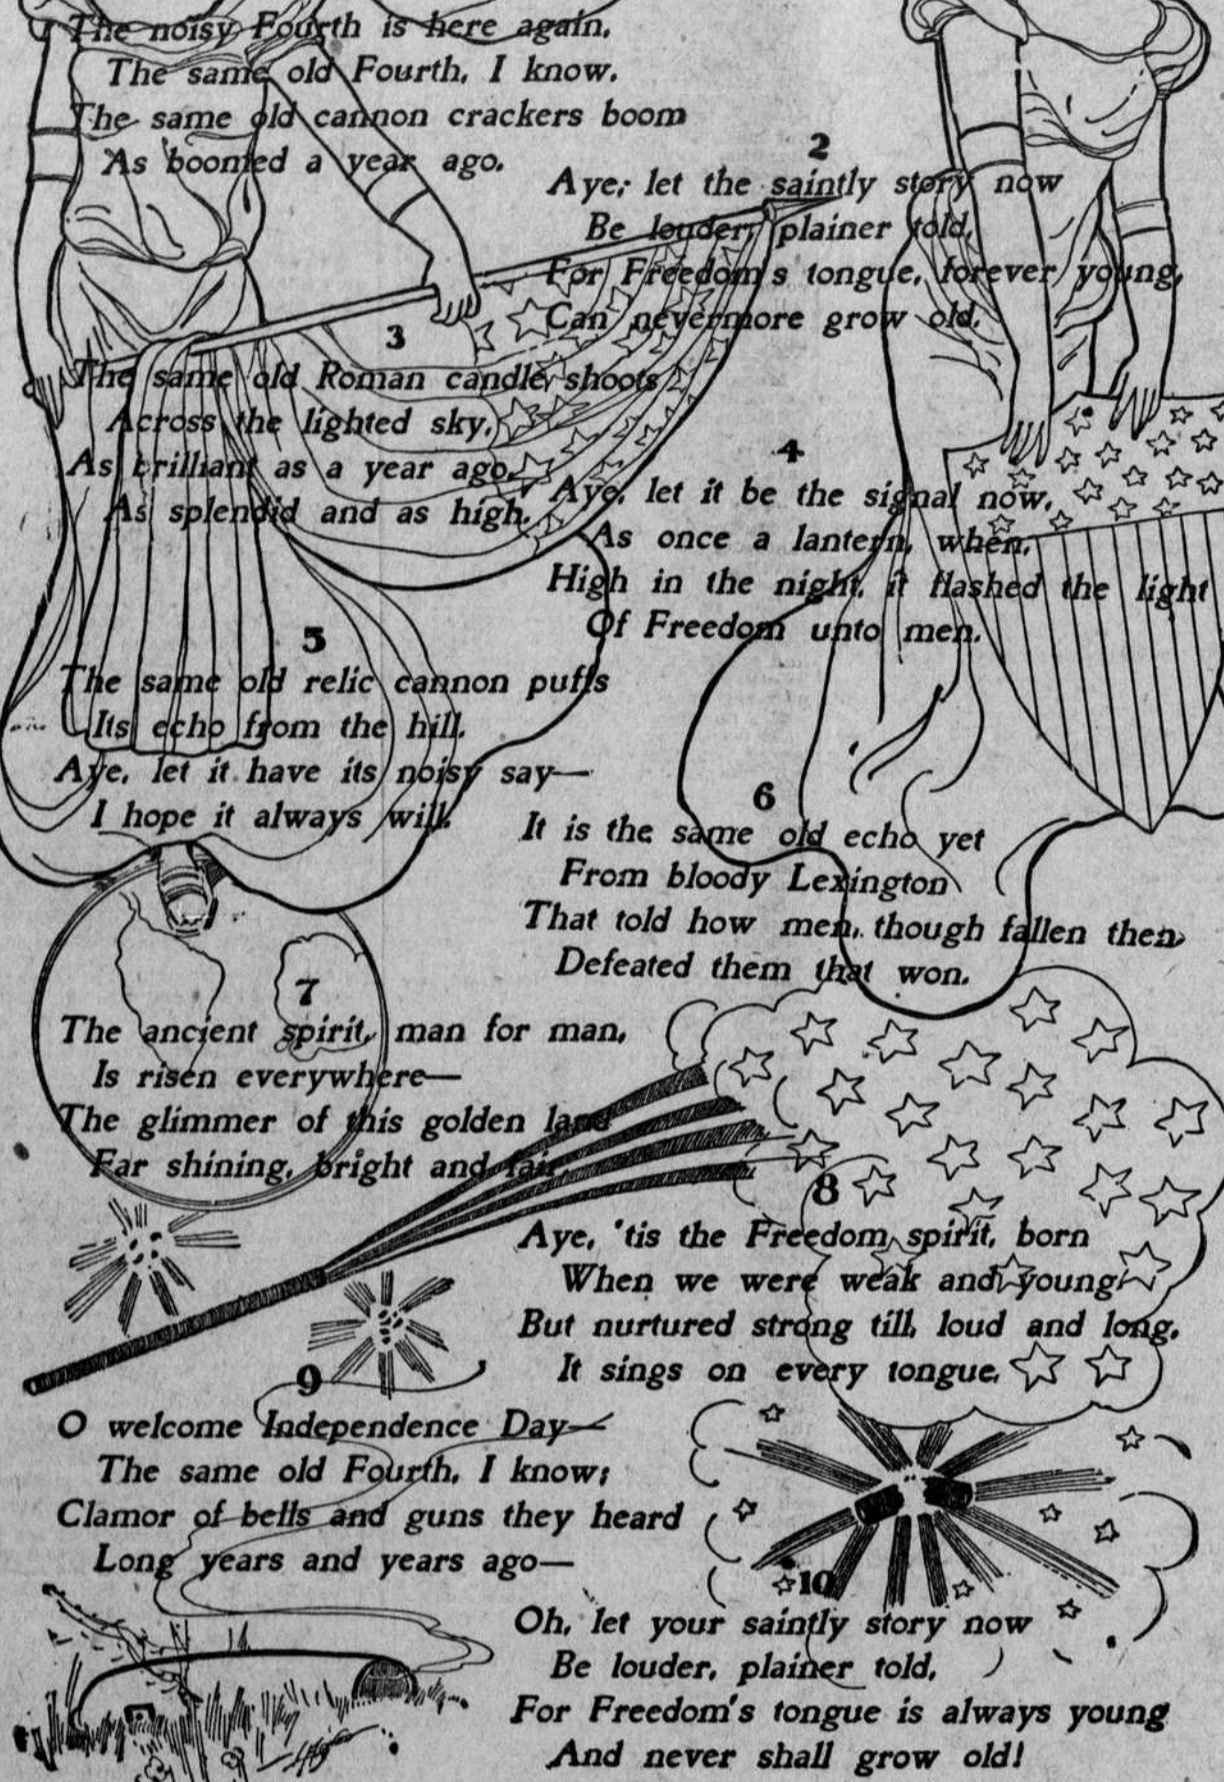 The noisy Fourth is here again,
The same old Fourth, I know.
The same old cannon crackers boom
As boomed a year ago.
2
Aye; let the saintly story now
Be louder, plainer told,
For Freedom's tongue, forever young,
Can nevermore grow old.
3
The same old Roman candle shoots
Across the lighted sky,
As brilliant as a year ago,
As splendid and as high.
4
Aye, let it be the signal now,
As once a lantern, when,
High in the night, it flashed the light
Of Freedom unto men.
5
The same old relic cannon puffs
Its echo from the hill.
Aye, let it have its noisy say—
I hope it always will.
6
It is the same old echo yet
From bloody Lexington
That told how men, though fallen then,
Defeated them that won.
7
The ancient spirit, man for man,
Is risen everywhere—
The glimmer of this golden land
Far shining, bright and fair.
8
Aye, 'tis the Freedom spirit, born
When we were weak and young,
But nurtured strong till, loud and long,
It sings on every tongue.
9
O welcome Independence Day—
The same old Fourth, I know;
Clamor of bells and guns they heard
Long years and years ago—
10
Oh, let your saintly story now
Be louder, plainer told,
For Freedom's tongue is always young
And never shall grow old!